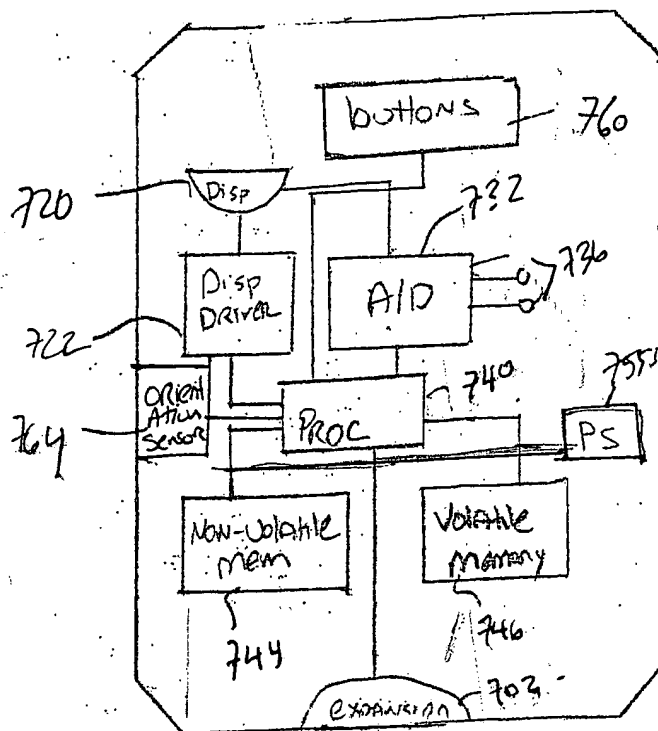 buttons
760
Disp
720
732
736
Disp
DRIVER
A/D
722
740
755
ORient
Ation
Sensor
764
PROC
PS
Non-Volatile
mem
Volatile
Memory
744
746
expansion
702